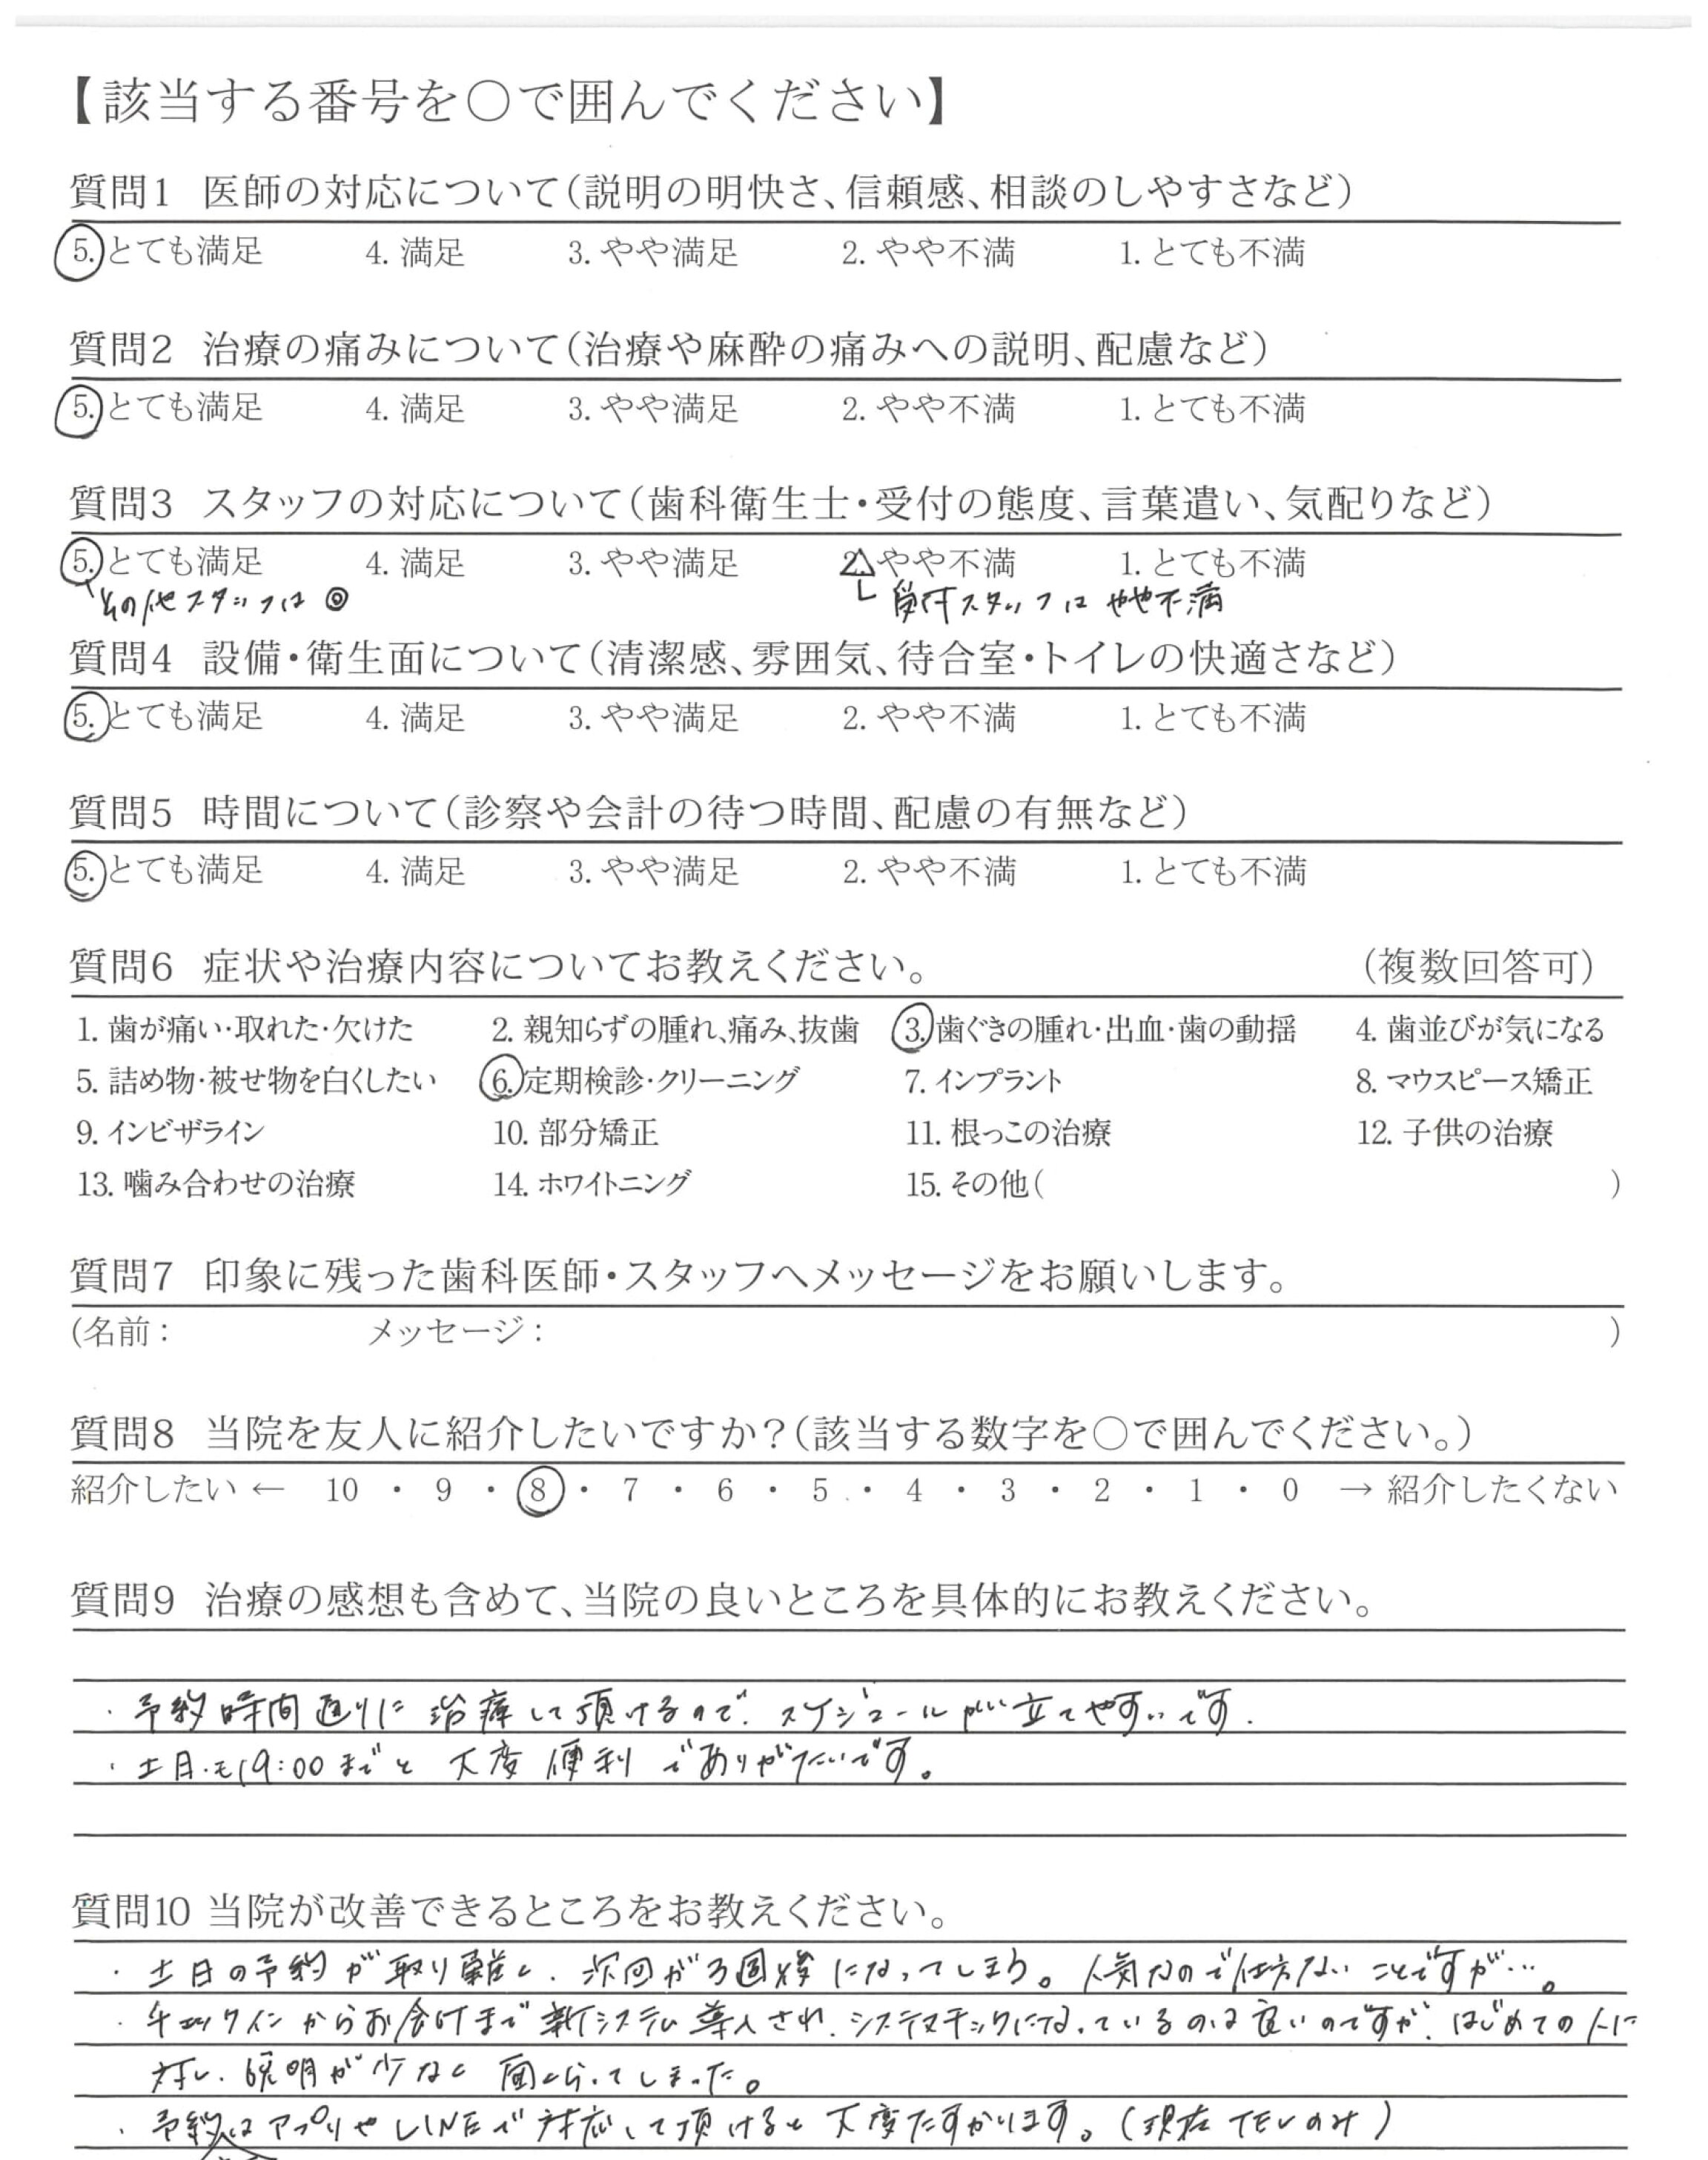 【該当する番号を○で囲んでください】
質問1 医師の対応について(説明の明快さ、信頼感、相談のしやすさなど)
5. とても満足 4. 満足 3. やや満足 2. やや不満 1. とても不満
質問2 治療の痛みについて(治療や麻酔の痛みへの説明、配慮など)
5. とても満足 4. 満足 3. やや満足 2. やや不満 1. とても不満
質問3 スタッフの対応について(歯科衛生士・受付の態度、言葉遣い、気配りなど)
5. とても満足 4. 満足 3. やや満足 2. やや不満 1. とても不満
その他スタッフは ◎ 受付スタッフは やや不満
質問4 設備・衛生面について(清潔感、雰囲気、待合室・トイレの快適さなど)
5. とても満足 4. 満足 3. やや満足 2. やや不満 1. とても不満
質問5 時間について(診察や会計の待つ時間、配慮の有無など)
5. とても満足 4. 満足 3. やや満足 2. やや不満 1. とても不満
質問6 症状や治療内容についてお教えください。 (複数回答可)
1. 歯が痛い・取れた・欠けた 2. 親知らずの腫れ、痛み、抜歯 3. 歯ぐきの腫れ・出血・歯の動揺 4. 歯並びが気になる
5. 詰め物・被せ物を白くしたい 6. 定期検診・クリーニング 7. インプラント 8. マウスピース矯正
9. インビザライン 10. 部分矯正 11. 根っこの治療 12. 子供の治療
13. 噛み合わせの治療 14. ホワイトニング 15. その他( )
質問7 印象に残った歯科医師・スタッフへメッセージをお願いします。
(名前: メッセージ: )
質問8 当院を友人に紹介したいですか?(該当する数字を○で囲んでください。)
紹介したい ← 10 ・ 9 ・ 8 ・ 7 ・ 6 ・ 5 ・ 4 ・ 3 ・ 2 ・ 1 ・ 0 → 紹介したくない
質問9 治療の感想も含めて、当院の良いところを具体的にお教えください。
・予約時間通りに治療して頂けるので、スケジュールが立てやすいです.
・土日も19:00までと大変便利でありがたいです。
質問10 当院が改善できるところをお教えください。
・土日の予約が取り難く、次回が3週後になってしまう。人気なので仕方ないことですが…。
・チェックインからお会計まで新システム導入され、システマチックになっているのは良いのですが、はじめての人に
対し、説明が少なく面くらってしまった。
・予約はアプリやLINEで対応して頂けると大変たすかります。(現在TELのみ)